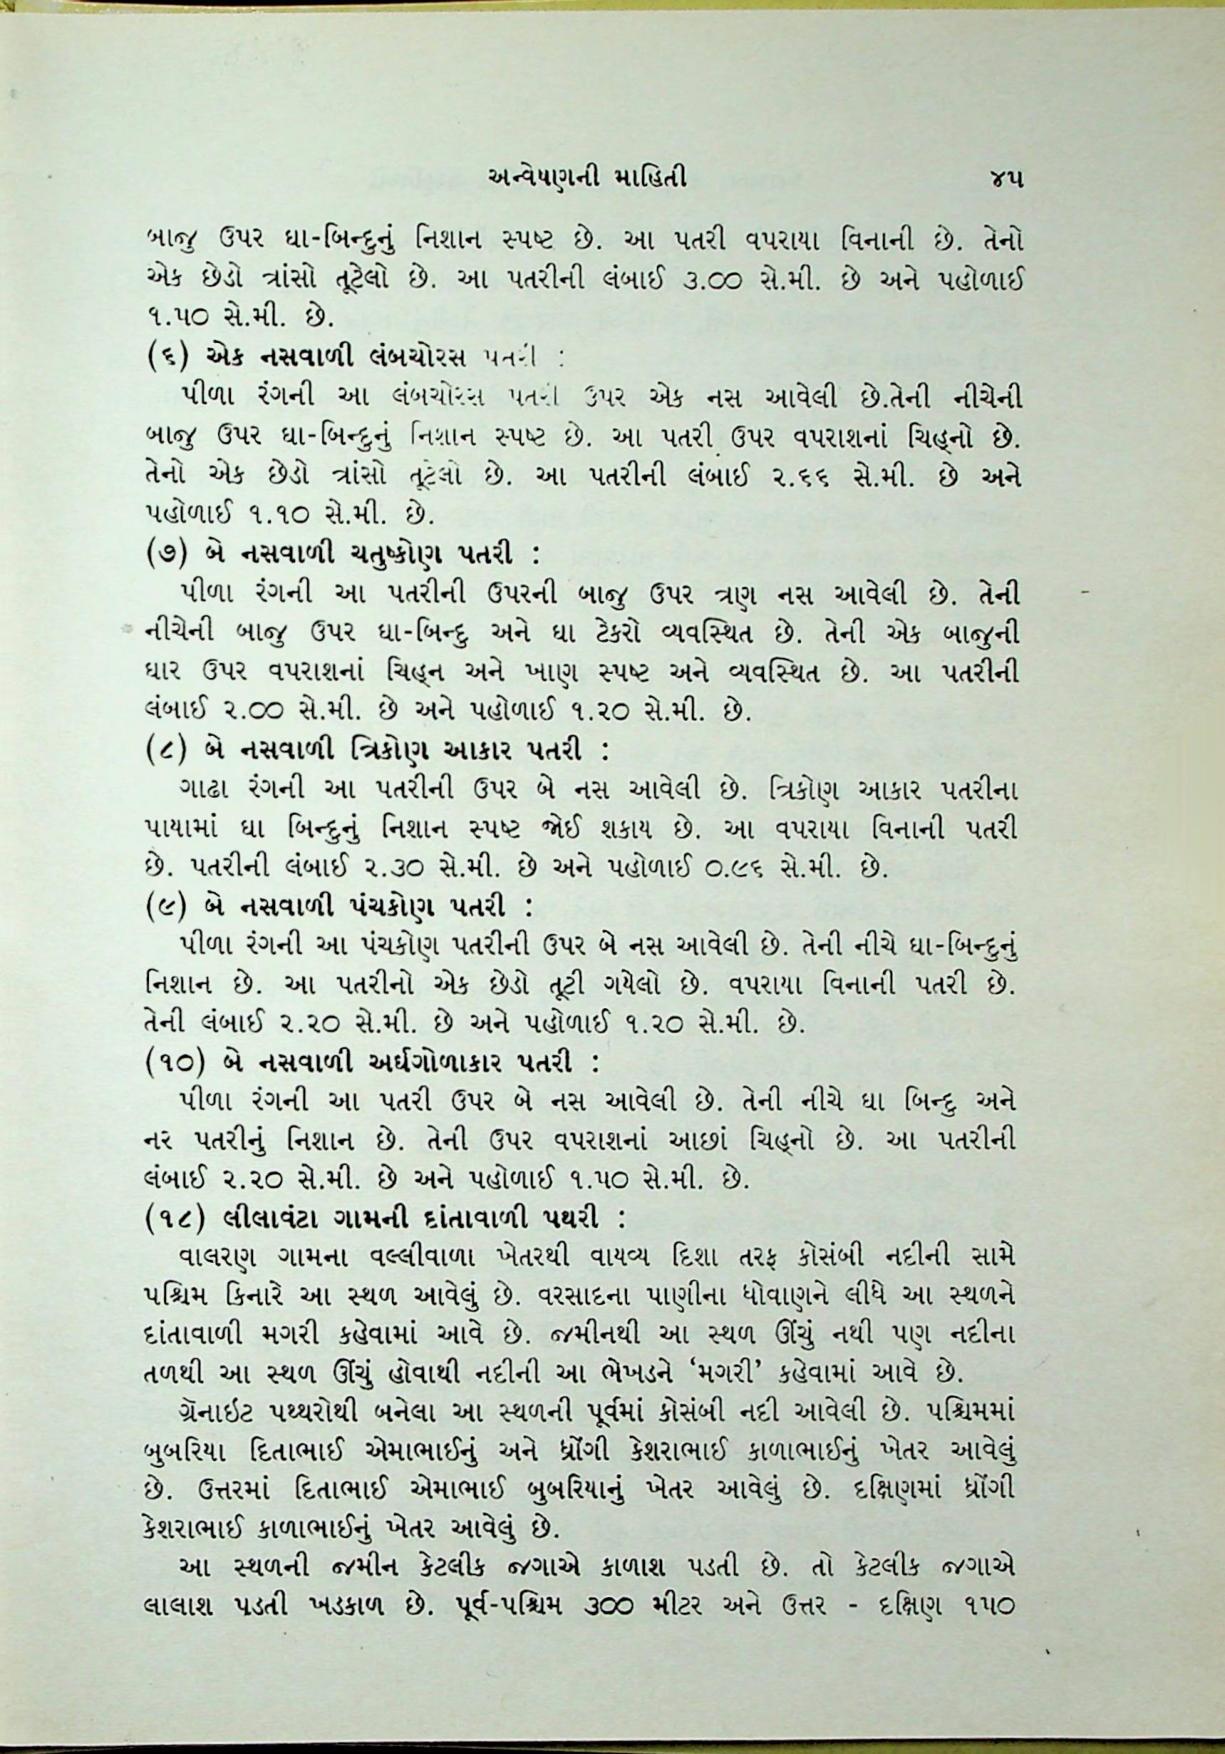 અન્વેષણની માહિતી ૪૫
બાજુ ઉપર ઘા-બિન્દુનું નિશાન સ્પષ્ટ છે. આ પતરી વપરાયા વિનાની છે. તેનો
એક છેડો ત્રાંસો તૂટેલો છે. આ પતરીની લંબાઈ ૩.૦૦ સે.મી. છે અને પહોળાઈ
૧.૫૦ સે.મી. છે.
(૬) એક નસવાળી લંબચોરસ પતરી :
પીળા રંગની આ લંબચોરસ પતરી ઉપર એક નસ આવેલી છે.તેની નીચેની
બાજુ ઉપર ઘા-બિન્દુનું નિશાન સ્પષ્ટ છે. આ પતરી ઉપર વપરાશનાં ચિહ્નો છે.
તેનો એક છેડો ત્રાંસો તૂટેલો છે. આ પતરીની લંબાઈ ૨.૬૬ સે.મી. છે અને
પહોળાઈ ૧.૧૦ સે.મી. છે.
(૭) બે નસવાળી ચતુષ્કોણ પતરી :
પીળા રંગની આ પતરીની ઉપરની બાજુ ઉપર ત્રણ નસ આવેલી છે. તેની
નીચેની બાજુ ઉપર ઘા-બિન્દુ અને ઘા ટેકરો વ્યવસ્થિત છે. તેની એક બાજુની
ધાર ઉપર વપરાશનાં ચિહ્ન અને ખાણ સ્પષ્ટ અને વ્યવસ્થિત છે. આ પતરીની
લંબાઈ ૨.૦૦ સે.મી. છે અને પહોળાઈ ૧.૨૦ સે.મી. છે.
(૮) બે નસવાળી ત્રિકોણ આકાર પતરી :
ગાઢા રંગની આ પતરીની ઉપર બે નસ આવેલી છે. ત્રિકોણ આકાર પતરીના
પાયામાં ઘા બિન્દુનું નિશાન સ્પષ્ટ જોઈ શકાય છે. આ વપરાયા વિનાની પતરી
છે. પતરીની લંબાઈ ૨.૩૦ સે.મી. છે અને પહોળાઈ ૦.૯૬ સે.મી. છે.
(૯) બે નસવાળી પંચકોણ પતરી :
પીળા રંગની આ પંચકોણ પતરીની ઉપર બે નસ આવેલી છે. તેની નીચે ઘા-બિન્દુનું
નિશાન છે. આ પતરીનો એક છેડો તૂટી ગયેલો છે. વપરાયા વિનાની પતરી છે.
તેની લંબાઈ ૨.૨૦ સે.મી. છે અને પહોળાઈ ૧.૨૦ સે.મી. છે.
(૧૦) બે નસવાળી અર્ધગોળાકાર પતરી :
પીળા રંગની આ પતરી ઉપર બે નસ આવેલી છે. તેની નીચે ઘા બિન્દુ અને
નર પતરીનું નિશાન છે. તેની ઉપર વપરાશનાં આછાં ચિહ્નો છે. આ પતરીની
લંબાઈ ૨.૨૦ સે.મી. છે અને પહોળાઈ ૧.૫૦ સે.મી. છે.
(૧૮) લીલાવંટા ગામની દાંતાવાળી પથરી :
વાલરણ ગામના વલ્લીવાળા ખેતરથી વાયવ્ય દિશા તરફ કોસંબી નદીની સામે
પશ્ચિમ કિનારે આ સ્થળ આવેલું છે. વરસાદના પાણીના ધોવાણને લીધે આ સ્થળને
દાંતાવાળી મગરી કહેવામાં આવે છે. જમીનથી આ સ્થળ ઊંચું નથી પણ નદીના
તળથી આ સ્થળ ઊંચું હોવાથી નદીની આ ભેખડને ‘મગરી’ કહેવામાં આવે છે.
ગ્રૅનાઇટ પથ્થરોથી બનેલા આ સ્થળની પૂર્વમાં કોસંબી નદી આવેલી છે. પશ્ચિમમાં
બુબરિયા દિતાભાઈ એમાભાઈનું અને ધ્રોંગી કેશરાભાઈ કાળાભાઈનું ખેતર આવેલું
છે. ઉત્તરમાં દિતાભાઈ એમાભાઈ બુબરિયાનું ખેતર આવેલું છે. દક્ષિણમાં ધ્રોંગી
કેશરાભાઈ કાળાભાઈનું ખેતર આવેલું છે.
આ સ્થળની જમીન કેટલીક જગાએ કાળાશ પડતી છે. તો કેટલીક જગાએ
લાલાશ પડતી ખડકાળ છે. પૂર્વ-પશ્ચિમ ૩૦૦ મીટર અને ઉત્તર - દક્ષિણ ૧૫૦